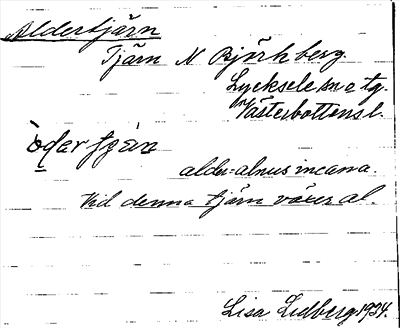 Aldertjärn
Tjärn N Björkberg.
Lycksele sn o tg.
Västerbottensl.
alder = alnus incana.
Vid denna tjärn växer al.
Lisa Lidberg 1934.